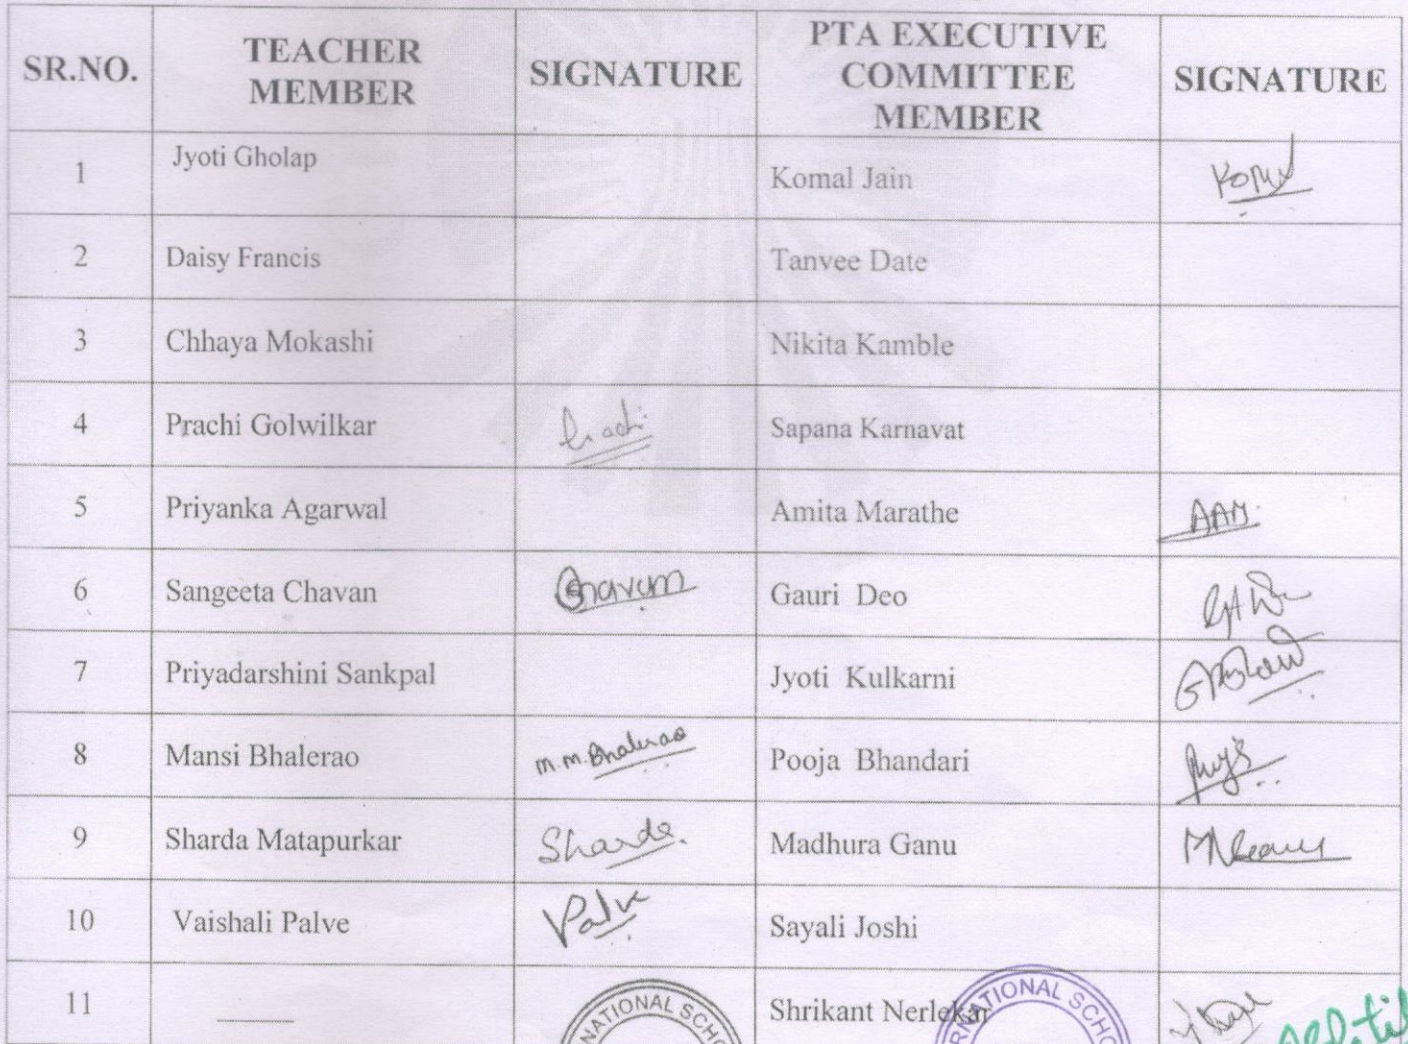 SR.NO. TEACHER MEMBER SIGNATURE PTA EXECUTIVE COMMITTEE MEMBER SIGNATURE
1 Jyoti Gholap Komal Jain Komal
2 Daisy Francis Tanvee Date
3 Chhaya Mokashi Nikita Kamble
4 Prachi Golwilkar Prachi Sapana Karnavat
5 Priyanka Agarwal Amita Marathe AAM.
6 Sangeeta Chavan Chavan Gauri Deo
7 Priyadarshini Sankpal Jyoti Kulkarni
8 Mansi Bhalerao M.M.Bhalerao Pooja Bhandari
9 Sharda Matapurkar Sharda. Madhura Ganu
10 Vaishali Palve Palve Sayali Joshi
11 Shrikant Nerlekar